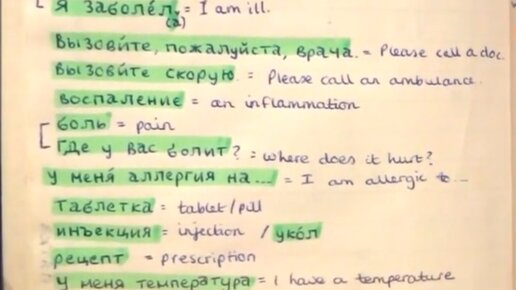 Я заболе́л = I am ill.
(а)
Вы́зовите, пожалуйста, врача. = Please call a doc.
Вызови́те скорую. = Please call an ambulance.
воспаление = an inflammation
боль = pain
Где у вас болит? = where does it hurt?
у меня́ аллергия на... = I am allergic to...
таблетка = tablet/pill
инъекция = injection / уко́л
рецепт = prescription
у меня температура = I have a temperature